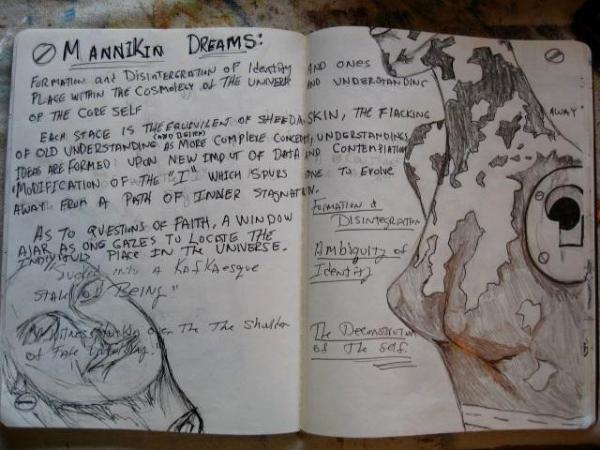 MANNIKIN DREAMS:
FORMATION and DISINTERGRATION OF IDENTITY AND ONES
PLACE WITHIN THE COSMOLEGY OF THE UNIVERSE AND UNDERSTANDING
OF THE CORE SELF
EACH STAGE IS THE EQUIVILENT OF SHEEDA SKIN, THE FLACKING AWAY"
OF OLD UNDERSTANDING AS MORE COMPLEXE CONCEPTS, UNDERSTANDINGS
IDEAS ARE FORMED UPON NEW IMPUT OF DATA AND CONTEMPLATION
MODIFICATION OF THE "I" WHICH SPURS ONE TO EVOLVE
AWAY FROM A PATH OF INNER STAGNATION.
AS TO QUESTIONS OF FAITH, A WINDOW
AJAR AS ONE GAZES TO LOCATE THE
INDIVIDULS PLACE IN THE UNIVERSE.
INTO A KAFKAESQUE
BEING"
OVER THE THE SHULDER
OF
FORMATION &
DISINTEGRATION
AMBIGUITY OF
IDENTITY
THE DECONSTRUCTION
OF THE SELF.